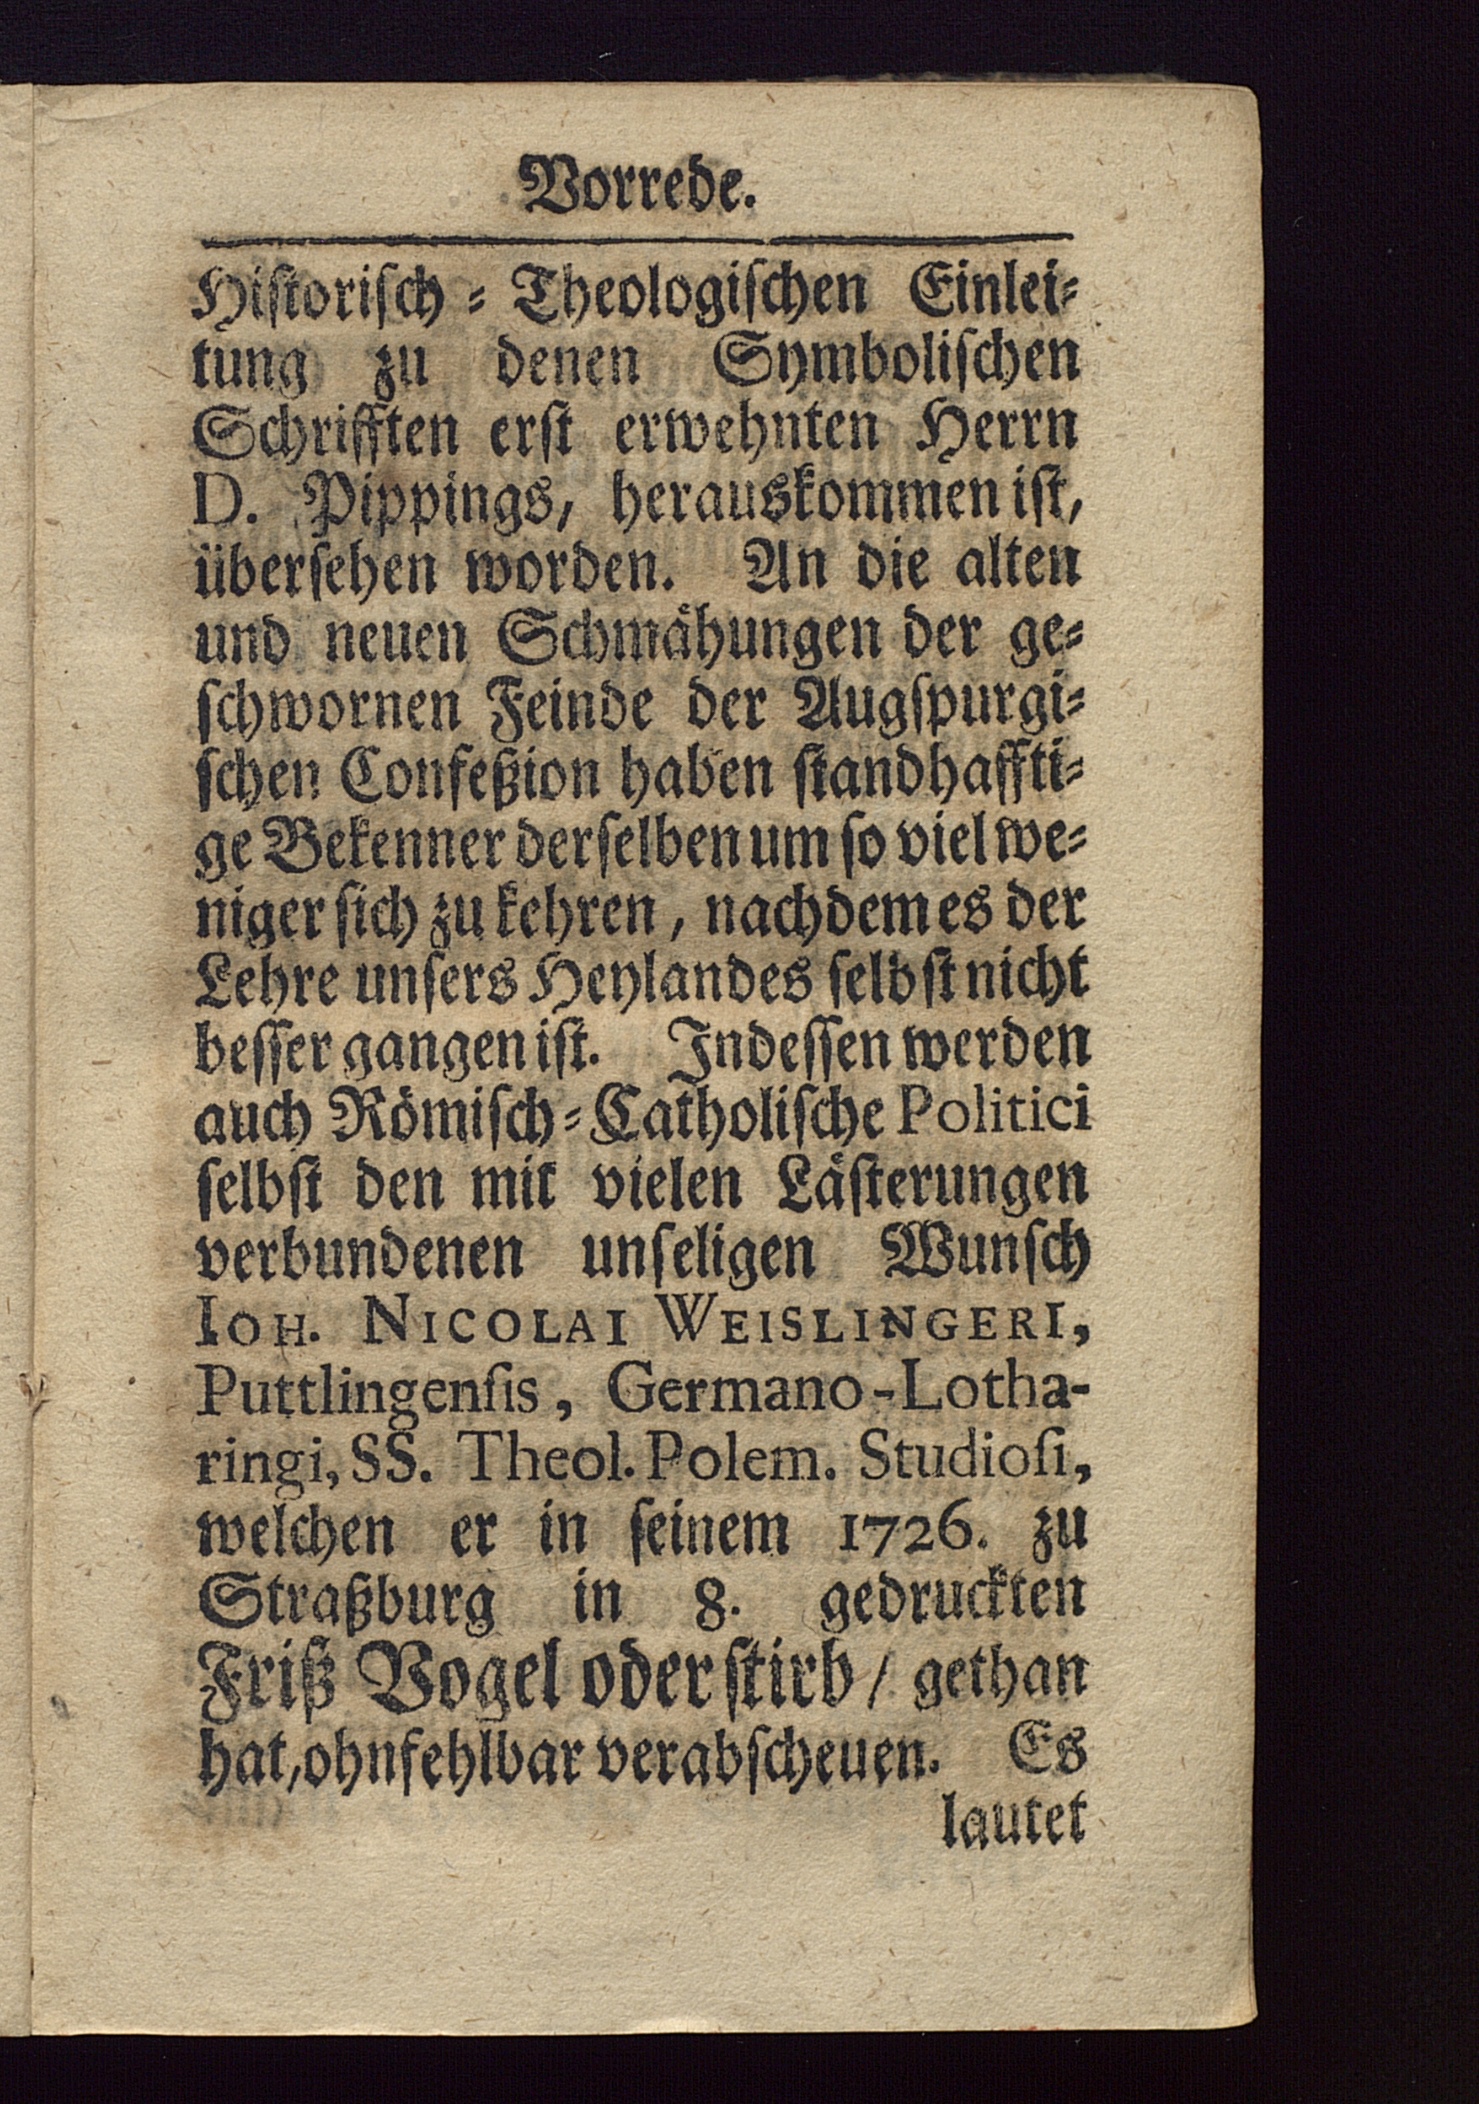 Vorrede.
Hiſtoriſch = Theologiſchen Einlei=
tung zu denen Symboliſchen
Schrifften erſt erwehnten Herrn
D. Pippings, herauskommen iſt,
überſehen worden. An die alten
und neuen Schmaͤhungen der ge=
ſchwornen Feinde der Augſpurgi=
ſchen Confeßion haben ſtandhaffti=
ge Bekenner derſelben um ſo viel we=
niger ſich zu kehren, nachdem es der
Lehre unſers Heylandes ſelbſt nicht
beſſer gangen iſt. Indeſſen werden
auch Römiſch=Catholiſche Politici
ſelbſt den mit vielen Laͤſterungen
verbundenen unſeligen Wunſch
IOH. NICOLAI WEISLINGERI,
Puttlingenſis, Germano-Lotha-
ringi, SS. Theol. Polem. Studioſi,
welchen er in ſeinem 1726. zu
Straßburg in 8. gedruckten
Friß Vogel oder ſtirb / gethan
hat, ohnfehlbar verabſcheuen. Es
lautet